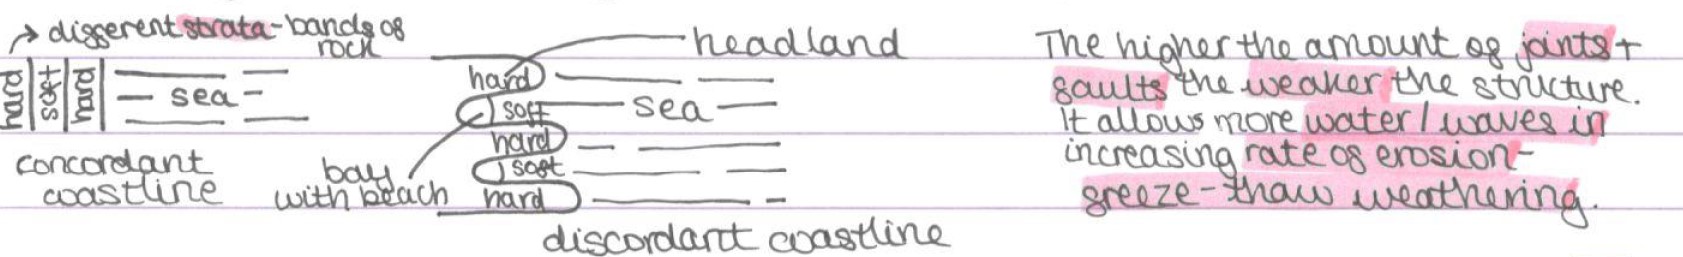 → different strata - bands of
rock
hard
soft
hard
sea
concordant
coastline
headland
hard
soft
hard
soft
hard
sea
bay
with beach
discordant coastline
The higher the amount of joints +
faults the weaker the structure.
It allows more water / waves in
increasing rate of erosion -
freeze - thaw weathering.